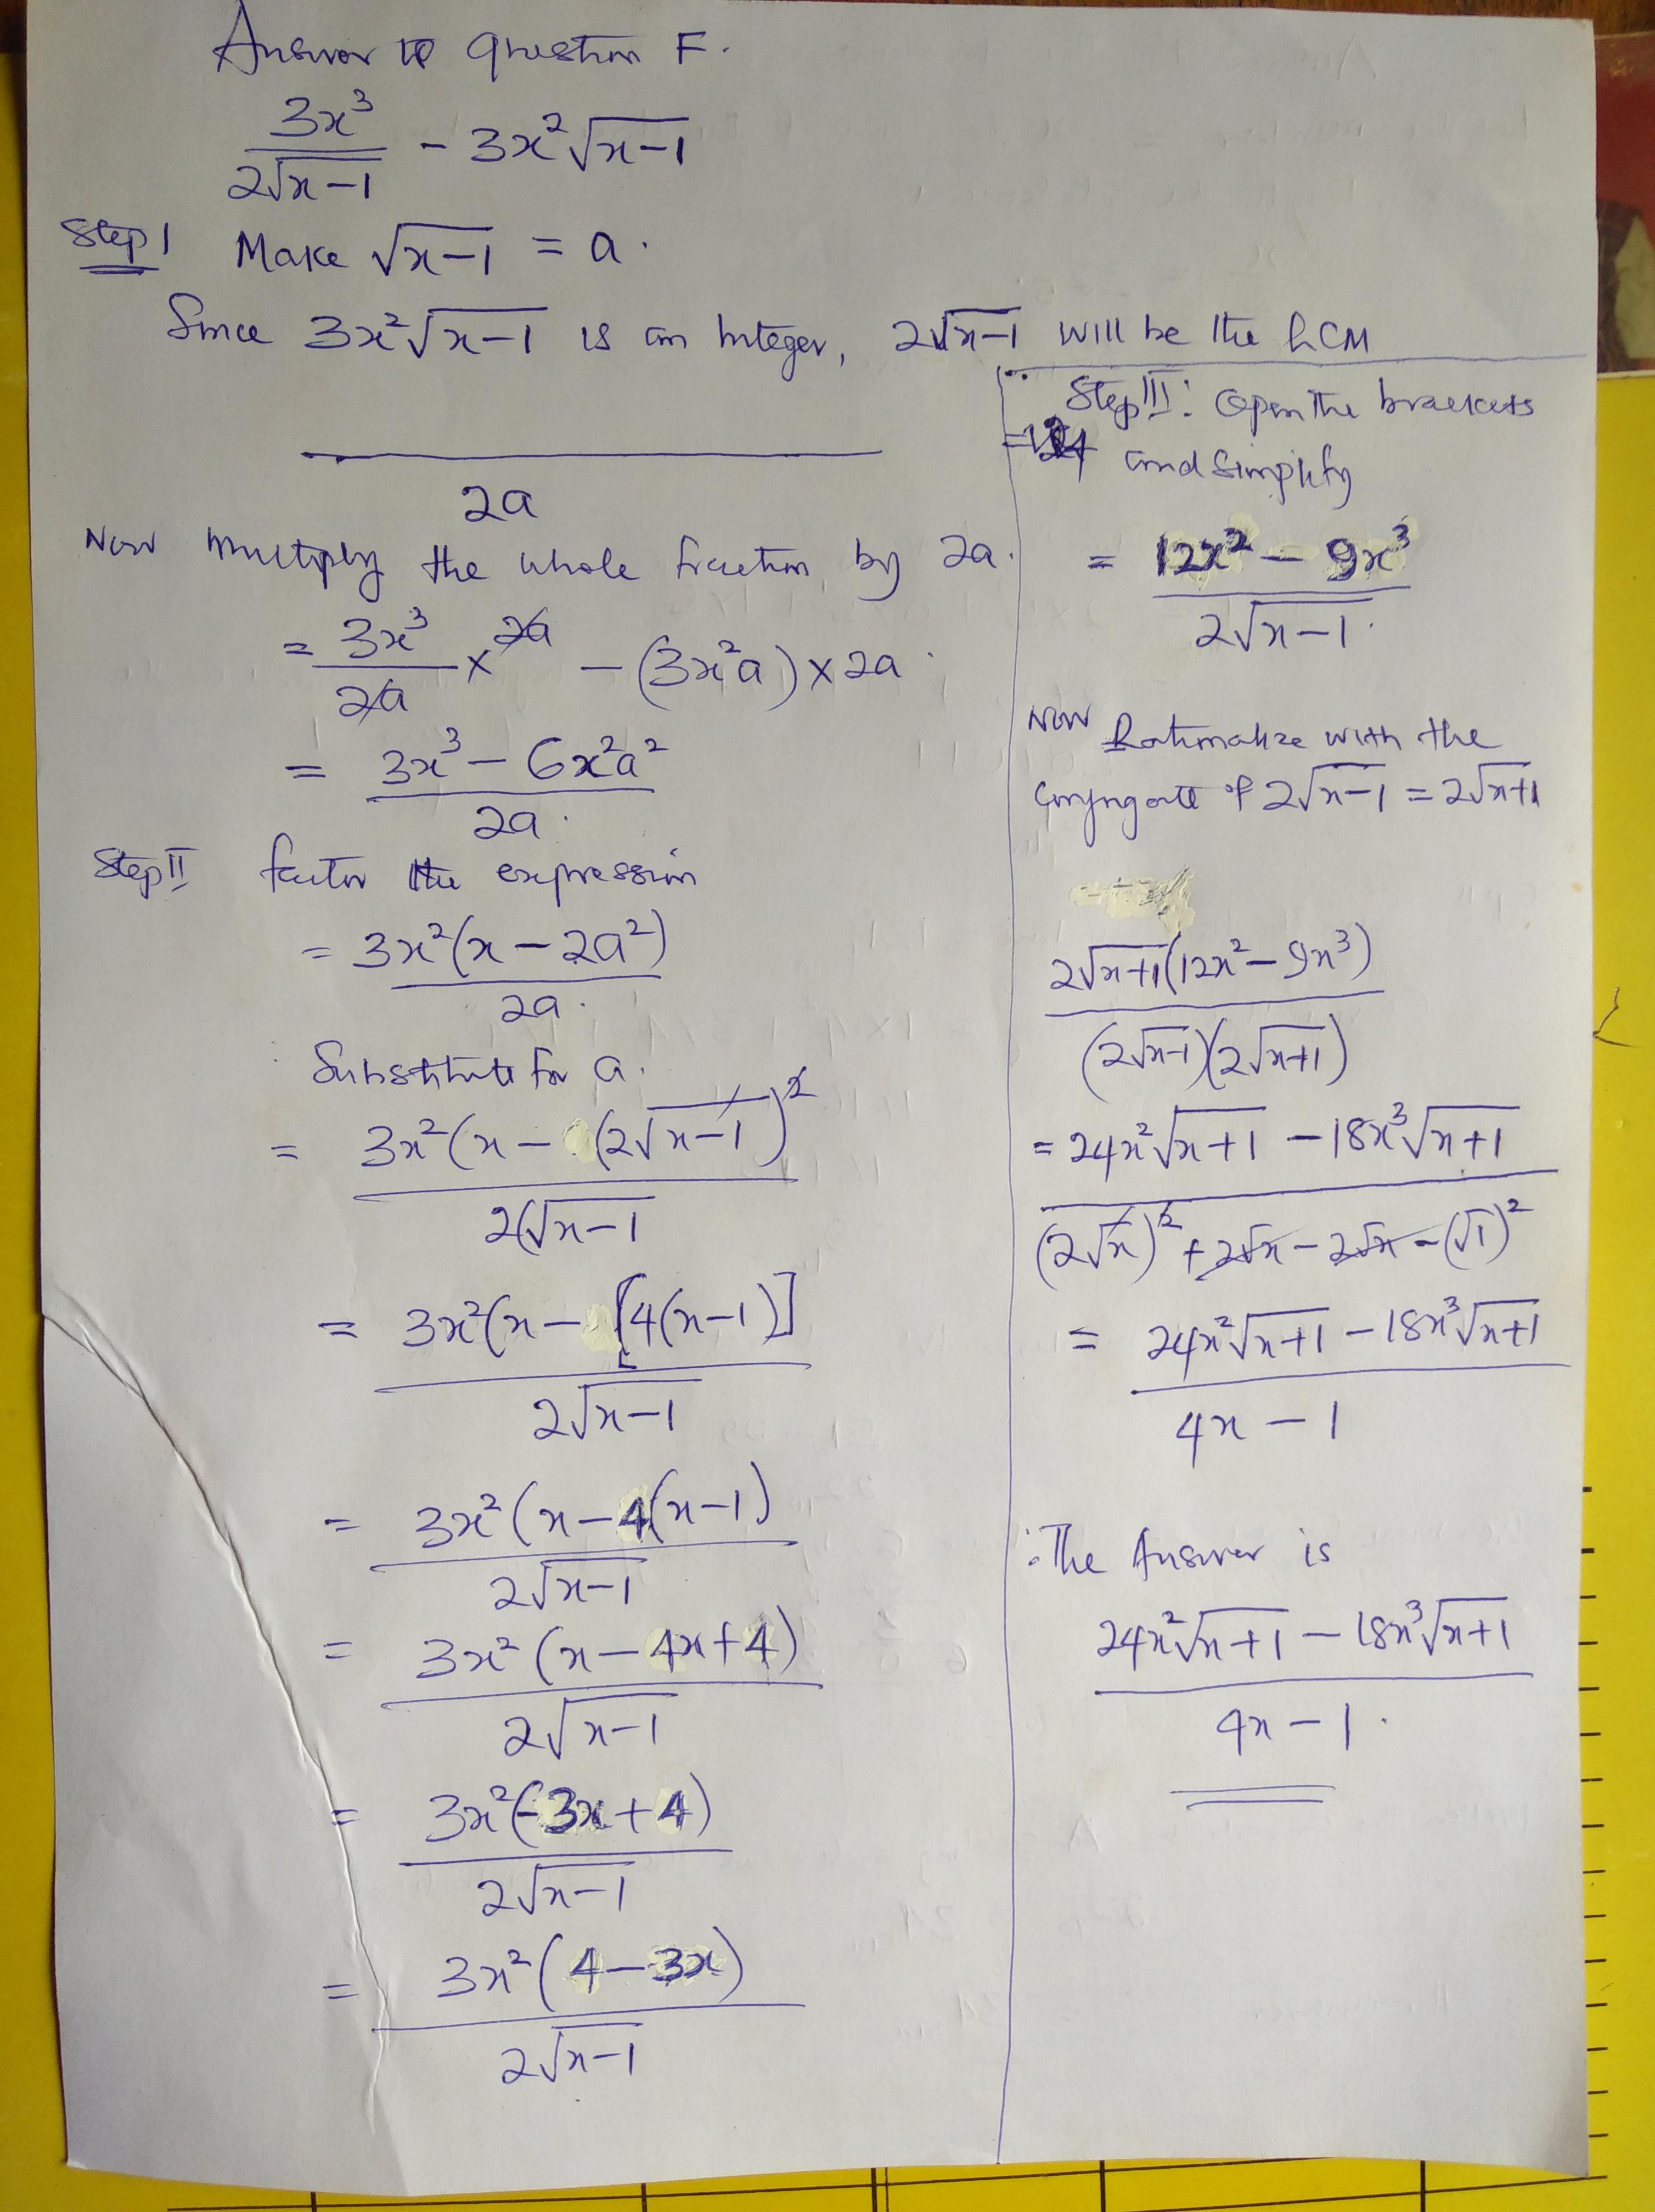 Answer to Question F.
3x³/2√x-1 - 3x²√x-1
Step 1 Make √x-1 = a.
Since 3x²√x-1 is an Integer, 2√x-1 will be the LCM
/2a
Now multiply the whole fraction by 2a.
= 3x³/2a × 2a - (3x²a) × 2a.
= 3x³ - 6x²a²/2a.
Step II factor the expression
= 3x²(x - 2a²)/2a.
Substitute for a.
= 3x²(x - (2√x-1)²/2(√x-1
= 3x²(x - [4(x-1)]/2√x-1
= 3x²(x-4(x-1)/2√x-1
= 3x²(x-4x+4)/2√x-1
= 3x²(-3x+4)/2√x-1
= 3x²(4-3x)/2√x-1
Step III: Open the brackets
and simplify
= 12x² - 9x³/2√x-1.
Now Rationalize with the
conjugate of 2√x-1 = 2√x+1
2√x+1(12x²-9x³)/(2√x-1)(2√x+1)
= 24x²√x+1 - 18x³√x+1/(2√x)² + 2√x - 2√x - (√1)²
= 24x²√x+1 - 18x³√x+1/4x - 1
∴ The Answer is
24x²√x+1 - 18x³√x+1/4x - 1.